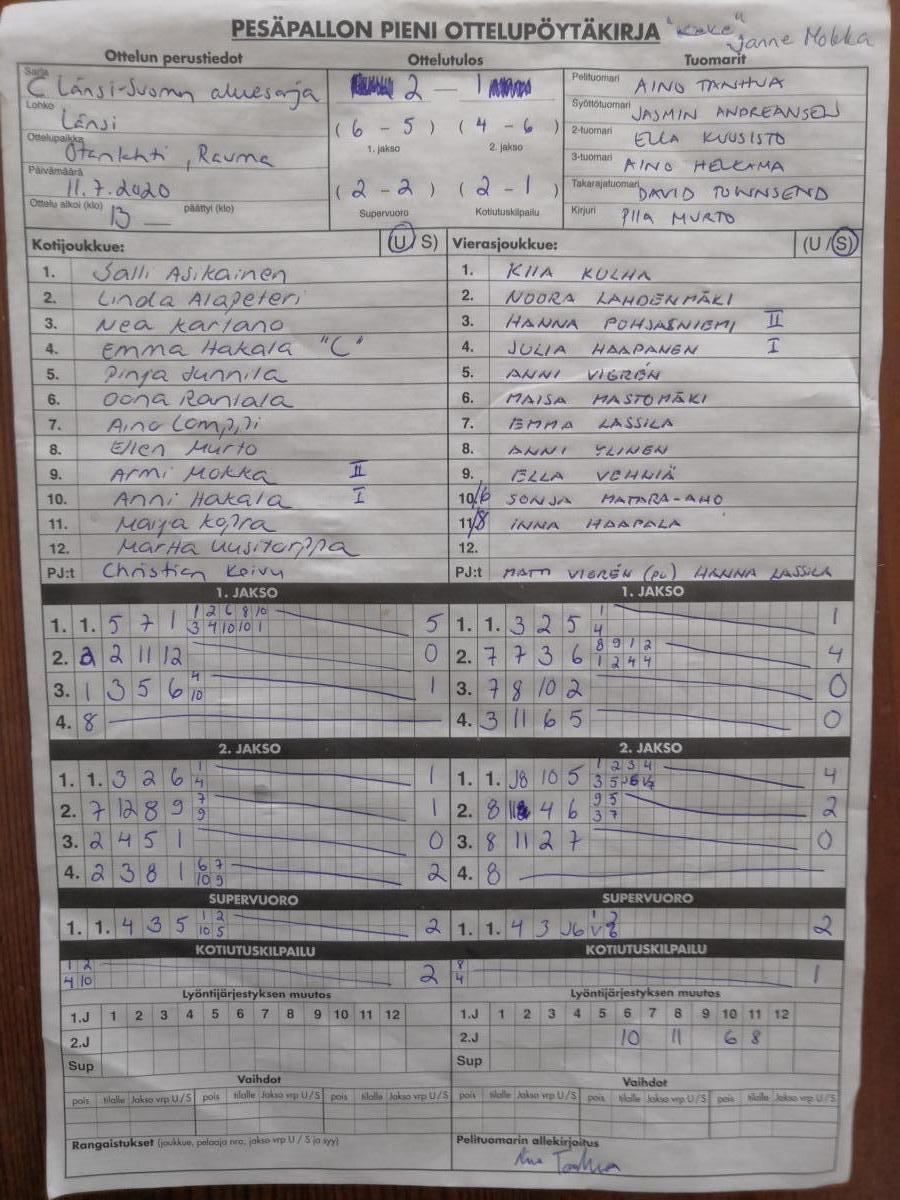 PESÄPALLON PIENI OTTELUPÖYTÄKIRJA "Keke" Janne Mokka
Ottelun perustiedot Ottelutulos Tuomarit
Sarja C Länsi-Suomen aluesarja 2 — 1 Pelituomari AINO TANHUA
Lohko Länsi Syöttötuomari JASMIN ANDREANSEN
( 6 - 5 ) ( 4 - 6 ) 2-tuomari ELLA KUUSISTO
Ottelupaikka Otanlahti, Rauma 1. jakso 2. jakso 3-tuomari AINO HELKAMA
Päivämäärä 11.7.2020 ( 2 - 2 ) ( 2 - 1 ) Takarajatuomari DAVID TOWNSEND
Ottelu alkoi (klo) 13 — päättyi (klo) Supervuoro Kotiutuskilpailu Kirjuri PIIA MURTO
Kotijoukkue: (U/S) Vierasjoukkue: (U/S)
1. Salli Asikainen 1. KIIA KULHA
2. Linda Alapeteri 2. NOORA LAHDENMÄKI
3. Nea Kartano 3. HANNA POHJASNIEMI II
4. Emma Hakala "C" 4. JULIA HAAPANEN I
5. Pinja Junnila 5. ANNI VIGRÉN
6. Oona Rantala 6. MAISA MASTOMÄKI
7. Aino Lomppi 7. EMMA LASSILA
8. Ellen Murto 8. ANNI YLINEN
9. Armi Mokka II 9. ELLA VEHNIÄ
10. Anni Hakala I 10/6 SONJA MATARA-AHO
11. Maija Kopra 11/8 INNA HAAPALA
12. Martta Uusitorppa 12.
PJ:t Christian Koivu PJ:t MATTI VIGRÉN (PL) HANNA LASSILA
1. JAKSO 1. JAKSO
1. 1. 5 7 1 1 2 6 8 10 5 1. 1. 3 2 5 1 1
3 4 10 10 1 4
2. 2 2 11 12 0 2. 7 7 3 6 8 9 1 2 4
1 2 4 4
3. 1 3 5 6 4 1 3. 7 8 10 2 0
10
4. 8 4. 3 11 6 5 0
2. JAKSO 2. JAKSO
1. 1. 3 2 6 1 1 1. 1. 8 10 5 1 2 3 4 4
4 3 5
2. 7 12 8 9 7 1 2. 8 4 6 9 5 2
9 3 7
3. 2 4 5 1 0 3. 8 11 2 7 0
4. 2 3 8 1 6 7 2 4. 8
10 9
SUPERVUORO SUPERVUORO
1. 1. 4 3 5 1 2 2 1. 1. 4 3 2
10 5
KOTIUTUSKILPAILU KOTIUTUSKILPAILU
1 2 2 8 1
4 10 4
Lyöntijärjestyksen muutos Lyöntijärjestyksen muutos
1.J 1 2 3 4 5 6 7 8 9 10 11 12 1.J 1 2 3 4 5 6 7 8 9 10 11 12
2.J 2.J 10 11 6 8
Sup Sup
Vaihdot Vaihdot
pois tilalle Jakso vrp U/S pois tilalle Jakso vrp U/S pois tilalle Jakso vrp U/S pois tilalle Jakso vrp U/S pois tilalle Jakso vrp U/S pois tilalle Jakso vrp U/S
Rangaistukset (joukkue, pelaaja nro, jakso vrp U / S ja syy) Pelituomarin allekirjoitus
Aino Tanhua